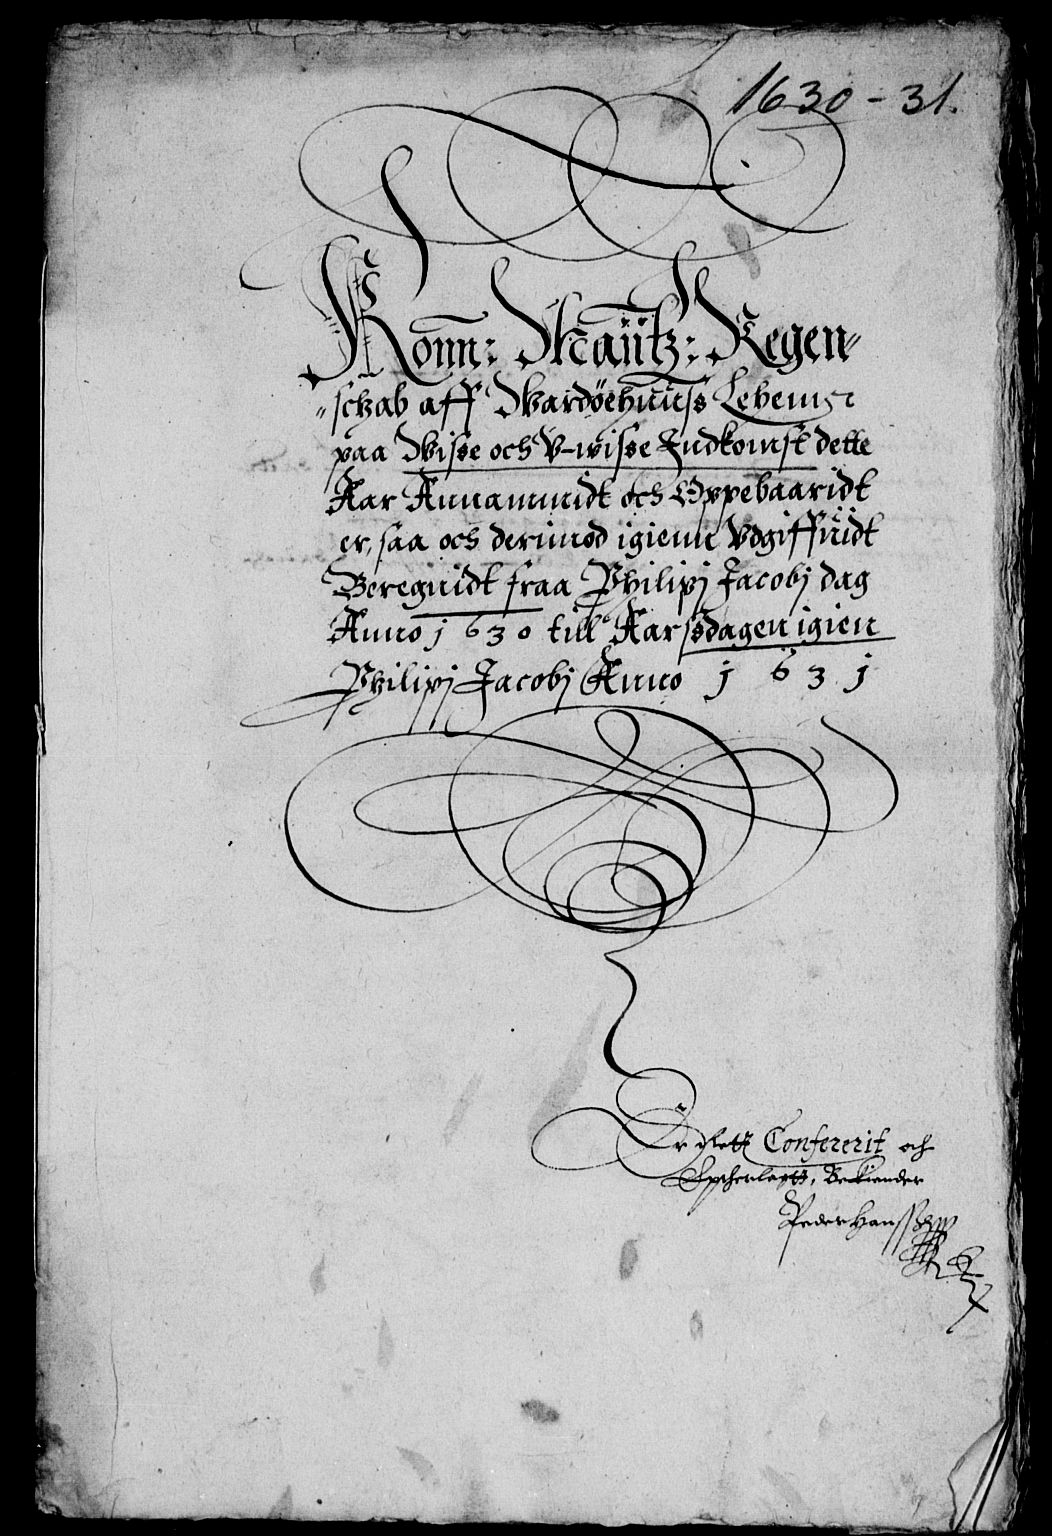 1630-31.
Konn: Maÿtz: Regen-
schab aff Wardøehuuss Lehenns
paa Wisse och V-wisse Indkomst dette
Aar Annammidt och Oppebaaridt
er, saa och derimod igienn Vdgiffuidt
Beregnidt fraa Philipj Jacobj dag
Anno j630 till Aarssdagen igien
Philipj Jacobj Anno j63j
Confererit och
Beckiender
Peder Hanssøn